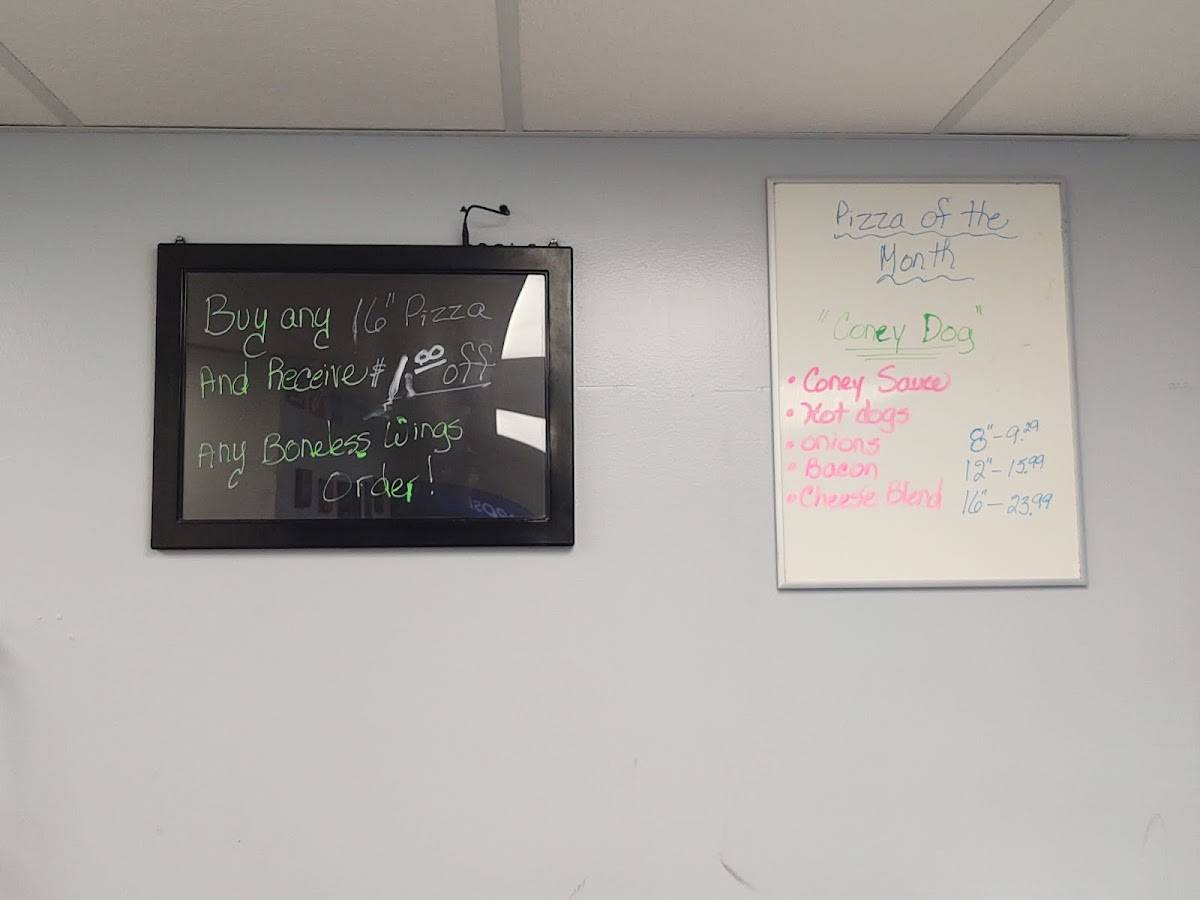 Buy any 16" Pizza
And Receive $1.00 off
Any Boneless Wings
Order!
Pizza of the
Month
"Coney Dog"
• Coney Sauce
• Hot dogs
• onions
• Bacon
• Cheese Blend
8" - 9.29
12" - 15.99
16" - 23.99